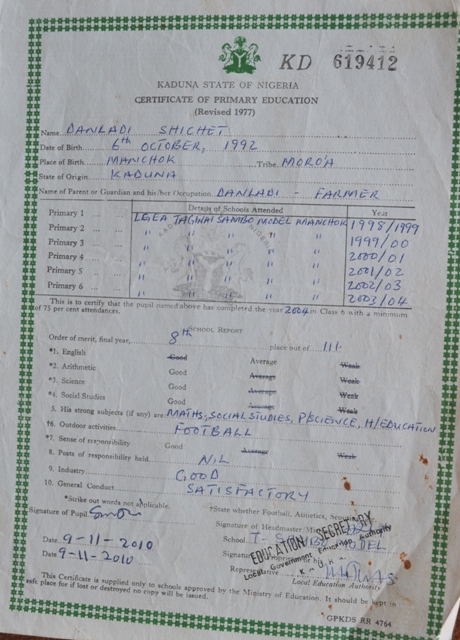 KD 619412
KADUNA STATE OF NIGERIA
CERTIFICATE OF PRIMARY EDUCATION
(Revised 1977)
Name DANLADI SHICHET
Date of Birth 6th OCTOBER, 1992
Place of Birth MANCHOK Tribe MORO'A
State of Origin KADUNA
Name of Parent or Guardian and his/her Occupation DANLADI - FARMER
Details of Schools Attended Year
Primary 1 LGEA TAGWAI SAMBO MODEL MANCHOK 1998/1999
Primary 2 " " " " " 1999/00
Primary 3 " " " " " 2000/01
Primary 4 " " " " " 2001/02
Primary 5 " " " " " 2002/03
Primary 6 " " " " " 2003/04
This is to certify that the pupil named above has completed the year 2004 in Class 6 with a minimum
of 75 per cent attendances.
SCHOOL REPORT
Order of merit, final year, 8th place out of 111
*1. English Good Average Weak
*2. Arithmetic Good Average Weak
*3. Science Good Average Weak
*4. Social Studies Good Average Weak
5. His strong subjects (if any) are: MATHS, SOCIAL STUDIES, P/SCIENCE, H/EDUCATION
†6. Outdoor activities FOOTBALL
*7. Sense of responsibility Good Average Weak
8. Posts of responsibility held NIL
9. Industry GOOD
10. General Conduct SATISFACTORY
*Strike out words not applicable. †State whether Football, Athletics,
Signature of Pupil Signature of Headmaster
School T- MODEL
Date 9-11-2010 Signature
Date 9-11-2010 Representative
Local Education Authority
EDUCATION SECRETARY
Local Government Education Authority
This Certificate is supplied only to schools approved by the Ministry of Education. It should be kept in
safe place for if lost or destroyed no copy will be issued.
GPKDS RR 4764